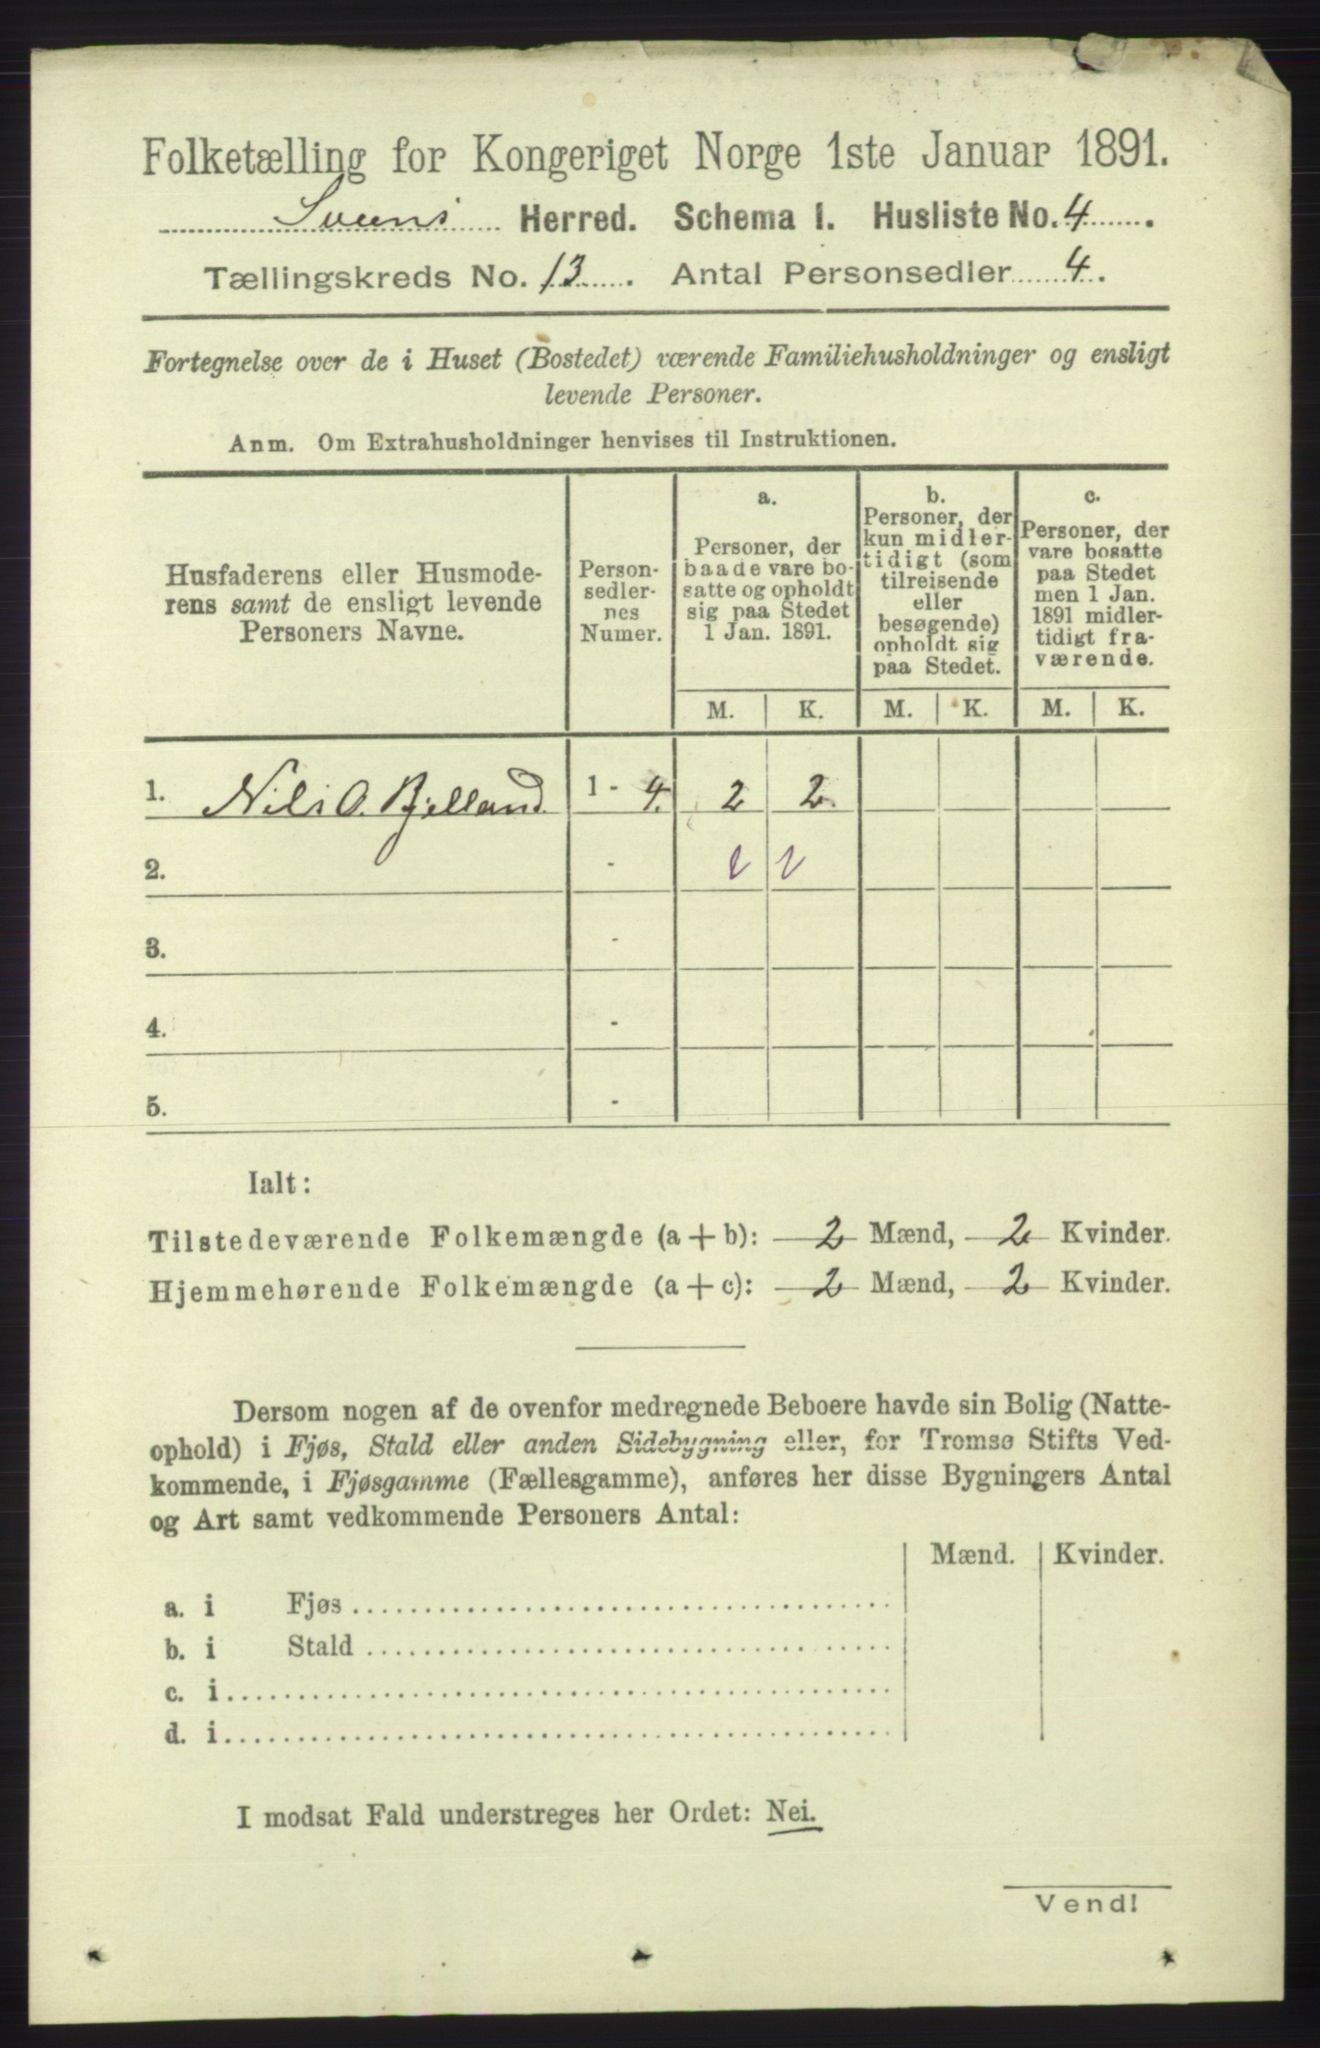 Folketælling for Kongeriget Norge 1ste Januar 1891.
Sveens Herred. Schema I. Husliste No. 4.
Tællingskreds No. 13. Antal Personsedler 4.
Fortegnelse over de i Huset (Bostedet) værende Familiehusholdninger og ensligt
levende Personer.
Anm. Om Extrahusholdninger henvises til Instruktionen.
Husfaderens eller Husmode-
rens samt de ensligt levende
Personers Navne.
Person-
sedler-
nes
Numer.
a.
Personer, der
baade vare bo-
satte og opholdt
sig paa Stedet
1 Jan. 1891.
b.
Personer, der
kun midler-
tidigt (som
tilreisende
eller
besøgende)
opholdt sig
paa Stedet.
c.
Personer, der
vare bosatte
paa Stedet
men 1 Jan.
1891 midler-
tidigt fra-
værende.
M. K. M. K. M. K.
1. Nils O. Bjelland. 1 - 4. 2 2.
2. - 2 2
3. -
4. -
5. -
Ialt:
Tilstedeværende Folkemængde (a + b): 2 Mænd, 2 Kvinder.
Hjemmehørende Folkemængde (a + c): 2 Mænd, 2 Kvinder.
Dersom nogen af de ovenfor medregnede Beboere havde sin Bolig (Natte-
ophold) i Fjøs, Stald eller anden Sidebygning eller, for Tromsø Stifts Ved-
kommende, i Fjøsgamme (Fællesgamme), anføres her disse Bygningers Antal
og Art samt vedkommende Personers Antal:
Mænd. Kvinder.
a. i Fjøs
b. i Stald
c. i
d. i
I modsat Fald understreges her Ordet: Nei.
Vend!